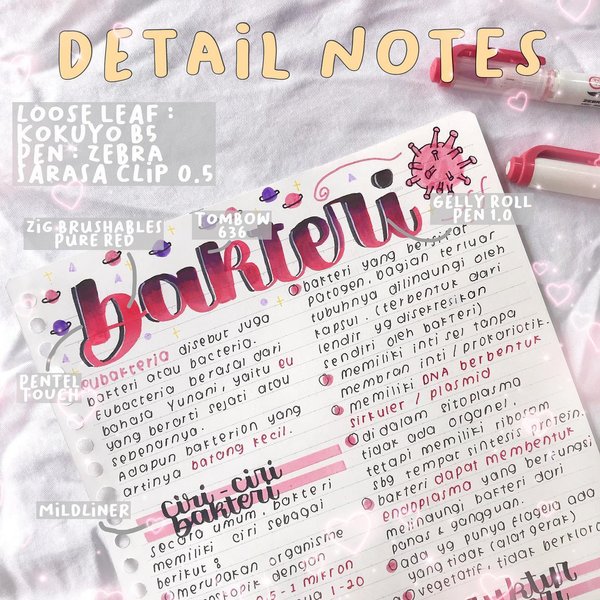 DETAIL NOTES
LOOSE LEAF :
KOKUYO B5
PEN : ZEBRA
SARASA CLIP 0.5
ZIG BRUSHABLES
PURE RED
TOMBOW
636
GELLY ROLL
PEN 1.0
PENTEL
TOUCH
MILDLINER
bakteri
eubakteria disebut juga
bakteri atau bacteria.
Eubacteria berasal dari
bahasa Yunani, yaitu eu
yang berarti sejati atau
sebenarnya.
Adapun bakterion yang
artinya batang kecil.
ciri-ciri
bakteri
secara umum, bakteri
memiliki ciri sebagai
berikut :
merupakan organisme
dengan
0.5-1 mikron
1-20
bakteri yang bersifat
patogen, bagian terluar
tubuhnya dilindungi oleh
kapsul. (terbentuk dari
lendir yg disekresikan
sendiri oleh bakteri)
memiliki inti sel tanpa
membran inti / prokariotik.
memiliki DNA berbentuk
sirkuler / plasmid
didalam sitoplasma
tidak ada organel,
tetapi memiliki ribosom
sbg tempat sintesis protein.
bakteri dapat membentuk
endoplasma yang berfungsi
melindungi bakteri dari
panas & gangguan.
ada yg punya flagela ada
yang tidak (alat gerak)
vegetatif, tidak berkloro